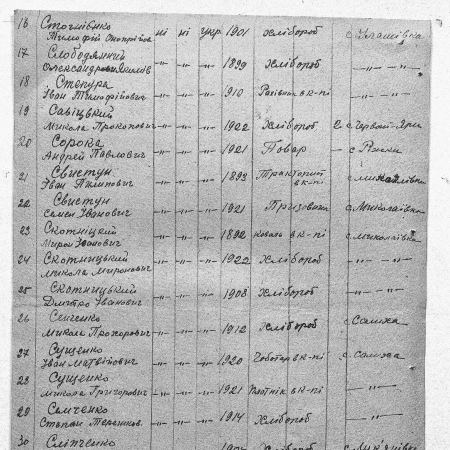 16 Стогнієнко
Тимофій Онопрійов. ні ні укр 1901 Хлібороб с. Улашівка
17 Слободяний
Олександр Якимів -"- -"- -"- 1899 Хлібороб -"-
18 Степура
Іван Тимофійович -"- -"- -"- 1910 Рахівник в к-пі -"-
19 Савіцький
Микола Прокопович -"- -"- -"- 1922 Хлібороб с. Червон. Яри
20 Сорока
Андрей Павлович -"- -"- -"- 1921 Повар с. Ряжка
21 Свистун
Іван -"- -"- -"- 1893 Тракторист в к-пі с. Миколаївка
22 Свистун
Семен Іванович -"- -"- -"- 1921 с. Миколаївка
23 Скотніцкий
Мирон Іванович -"- -"- -"- 1892 Коваль в к-пі с. Миколаївка
24 Скотницький
Микола Миронович -"- -"- -"- 1922 Хлібороб -"-
25 Скотницький
Дмитро Іванович -"- -"- -"- 1908 Хлібороб -"-
26 Сенченко
Микола Прохорович -"- -"- -"- 1912 Хлібороб
27 Сущенко
Іван Матвійович -"- -"- -"- 1920 Чоботар в к-пі
28 Сущенко
Микола Григорович -"- -"- -"- 1921 Плотнік в к-пі -"-
29 Семченко
Степан -"- -"- -"- 1914 Хлібороб -"-
30 Сліпченко
Хлібороб